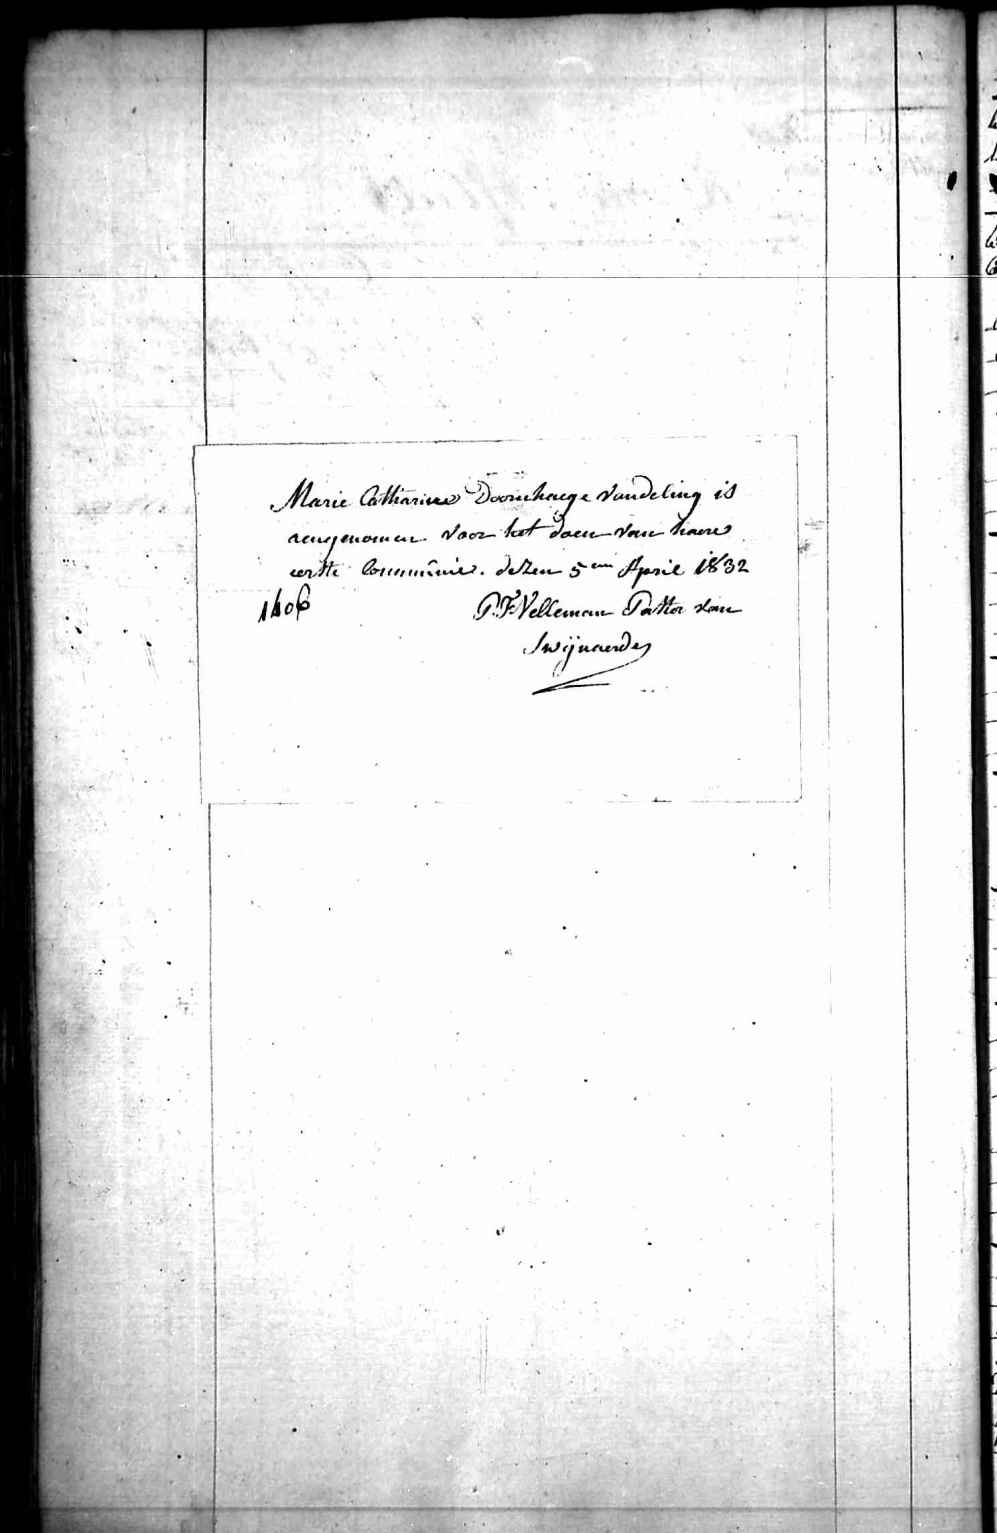 Marie Catharine Doornhaege Vondeling is
aengenomen voor het doen van haere
eerste Communie. dezen 5 em April 1832
1406 P. F. Velleman Pastor van
Swijnaerde